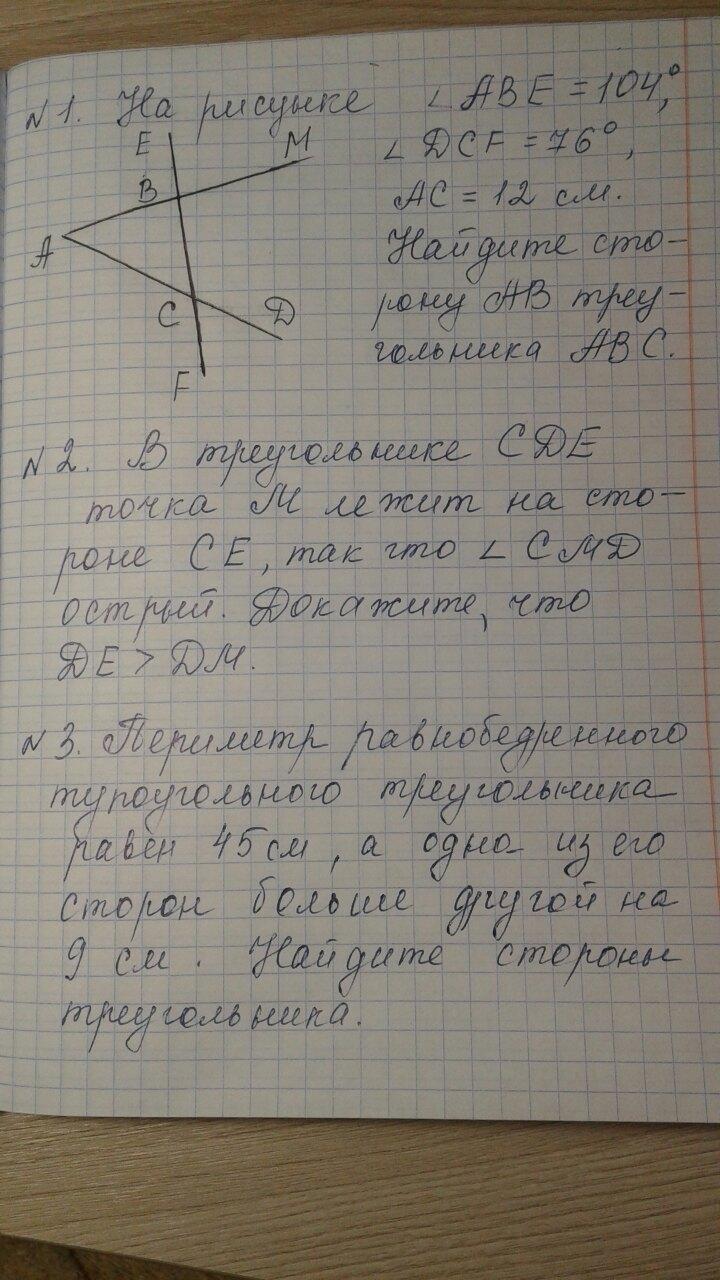 N 1. На рисунке ∠ ABE = 104°,
∠ DCF = 76°,
AC = 12 см.
Найдите сто-
рону AB треу-
гольника ABC.
E
M
B
A
C
D
F
N 2. В треугольнике CDE
точка M лежит на сто-
роне CE, так что ∠ CMD
острый. Докажите, что
DE > DM.
N 3. Периметр равнобедренного
тупоугольного треугольника
равен 45 см, а одна из его
сторон больше другой на
9 см. Найдите стороны
треугольника.